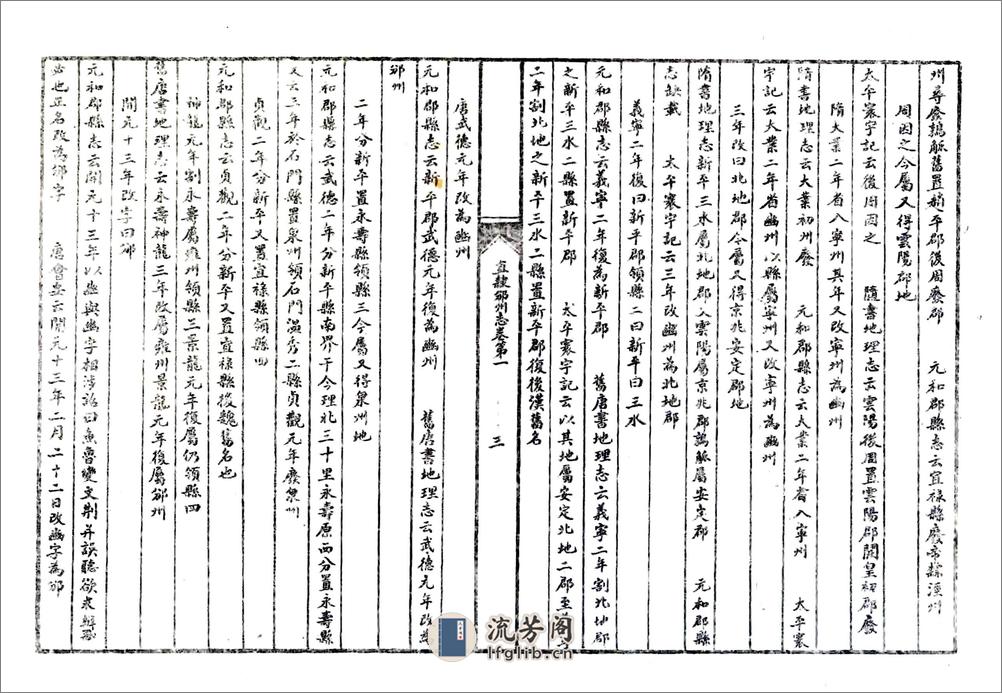 州尋廢鶉觚舊置趙平郡後周廢郡　元和郡縣志云宜祿縣廢帝縣涇州
周因之今屬又得雲陽郡地
太平寰宇記云後周因之　隨書地理志云雲陽後周置雲陽郡開皇初郡廢
隋大業二年省入寧州其年又改寧州為豳州
隋書地理志云大業初州廢　元和郡縣志云大業二年省入寧州　太平寰
宇記云大業二年省豳州以縣屬寧州又改寧州為豳州
三年改曰北地郡今屬又得京兆安定郡地
隋書地理志新平三水屬北地郡雲陽屬京兆郡鶉觚屬安定郡　元和郡縣
志缺載　太平寰宇記云三年改豳州為北地郡
義寧二年復曰新平郡領縣二曰新平曰三水
元和郡縣志云義寧二年復為新平郡　舊唐書地理志云義寧二年割北地郡
之新平三水二縣置新平郡　太平寰宇記云以其地屬安定北地二郡至
二年割北地之新平三水二縣置新平郡復後漢舊名
直隸邠州志卷第一　三
唐武德元年改為豳州
元和郡縣志云新平郡武德元年復為豳州　舊唐書地理志云武德元年改
邠州
二年分新平置永壽縣領縣三今屬又得泉州地
元和郡縣志云武德二年分新平縣南界于今理北三十里永壽原西分置永壽縣
又云三年於石門縣置泉州領石門溫秀二縣貞觀元年廢泉州
貞觀二年分新平又置宜祿縣領縣四
元和郡縣志云貞觀二年分新平又置宜祿縣後魏舊名也
神龍元年割永壽屬雍州領縣三景龍元年復屬仍領縣四
舊唐書地理志云永壽神龍三年改屬雍州景龍元年復屬邠州
開元十三年改字曰邠
元和郡縣志云開元十三年以豳與幽字相涉詔曰魚魯變文荆并誤聽欲求辯惑
必也正名改為邠字　唐會要云開元十三年二月二十二日改豳字為邠
流芳閣
lfglib.cn